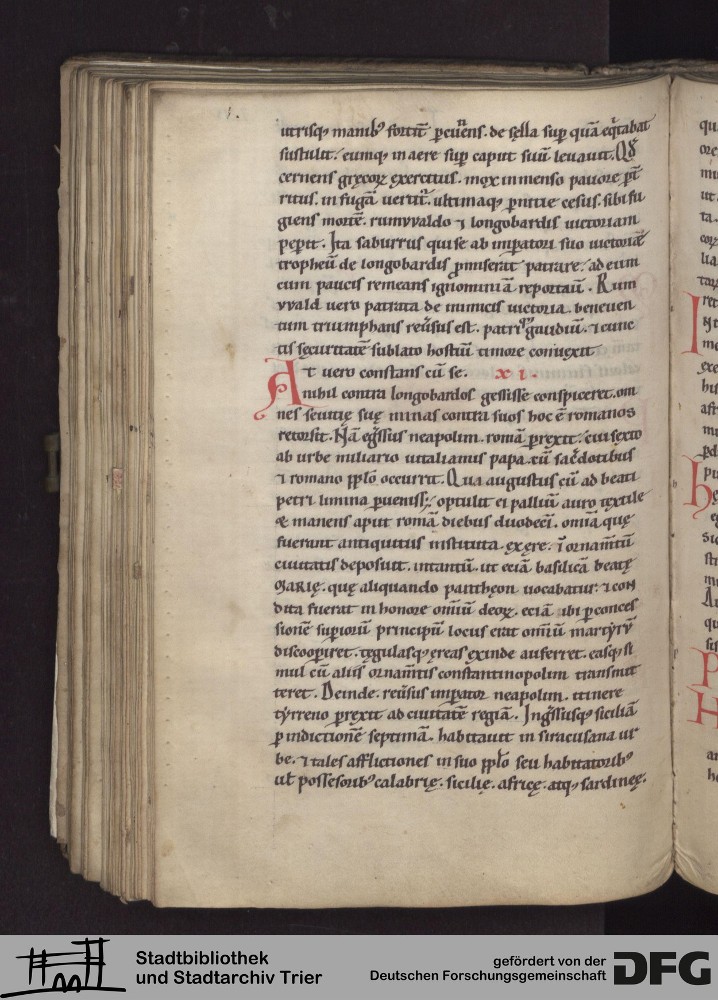 utrisq; manib; fortit̄ ꝑcuciens. de sęlla suꝑ quā eq̇tabat
sustulit. eumq; in aere suꝑ caput suū leuauit. Qđ
cernens gręcoꝝ exercitus. mox inmenso pauore ꝑt
ritus. in fugā uertit̄. ultimaq; ꝑnitie cesus. sibi fu
giens mortē. rumvvaldo ⁊ longobardis uictoriam
peꝑit. Ita saburrus qui se ab imꝑatori suo uictoriæ
tropheū de longobardis ꝓmiserat patrare. ad eum
cum paucis remeans ignominiā reportauit. Rum
vvald uero patrata de inimicis uictoria. beneuen
tum triumphans reũsus est. patriq; gaudiū. ⁊ cunc
tis sęcuritatē sublato hostiū timore conuexit
At uero constans cū se. xi.
nihil contra longobardos gessisse conspiceret. om
nes seuitię suę minas contra suos hoc ē romanos
retorsit. Nā egressus neapolim. romā ꝑrexit. cui sexto
ab urbe miliario uitalianus papa cū sacerdotibus
⁊ romano pplō occurrit. Qua augustus cū ad beati
petri limina ꝑuenisset. optulit ei palliū auro textile
& manens aput romā diebus duodecī. omia quę
fuerant antiquitus instituta. ex ęre. ī ornam̄tū
ciuitatis deposuit. intantū. ut eciā basilicā beatę
MARIĘ. quę aliquando pantheon uocabatur. ⁊ con
dita fuerat in honore omiū deoꝝ. eciā ibi ꝑ conces
sionē suꝑiorū principū locus erat omiū martyrū
discooꝑiret. tęgulasq; ęreas exinde auferret. easq; si
mul cū aliis ornam̄tis constantinopolim transmit
teret. Deinde. reũsus imꝑator neapolim. itinere
tyrreno ꝑrexit ad ciuitatē regiā. Ingressusq; siciliā
ꝑ indictionē septimā. habitauit in siracusana ur
be. ⁊ tales afflictiones in suo pplō seu habitatorib;
uł possesorib; calabrię. sicilię. africę. atq; sardineę.
Stadtbibliothek
und Stadtarchiv Trier
gefördert von der
Deutschen Forschungsgemeinschaft
DFG